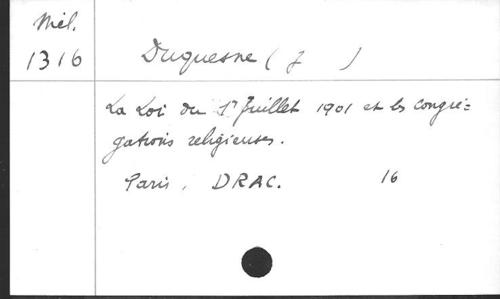 Mél.
1316
Duquesne (J )
La Loi du 1r Juillet 1901 et les congré=
gations religieuses.
Paris, DRAC. 16